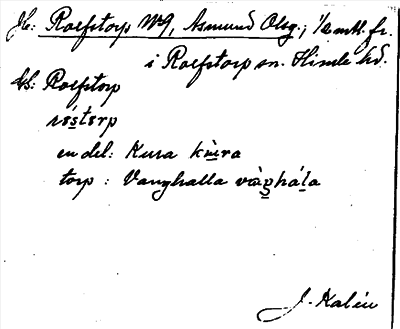 Jr: Rolfstorp Nr 9, Asmund Olsg., 1/2 mtl. fr.
i Rolfstorp sn. Himle hd.
Us: Rolfstorp
rɷ́s̲tɷrp
en del: Kura kù̲ra
torp: Vanghalla và̲ŋhál̲a
J. Kalén